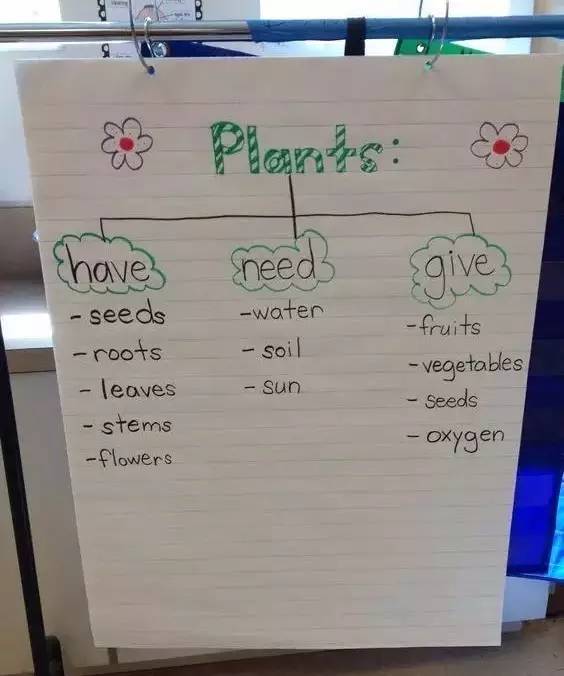 Plants:
have
- seeds
- roots
- leaves
- stems
- flowers
need
- water
- soil
- sun
give
- fruits
- vegetables
- seeds
- oxygen